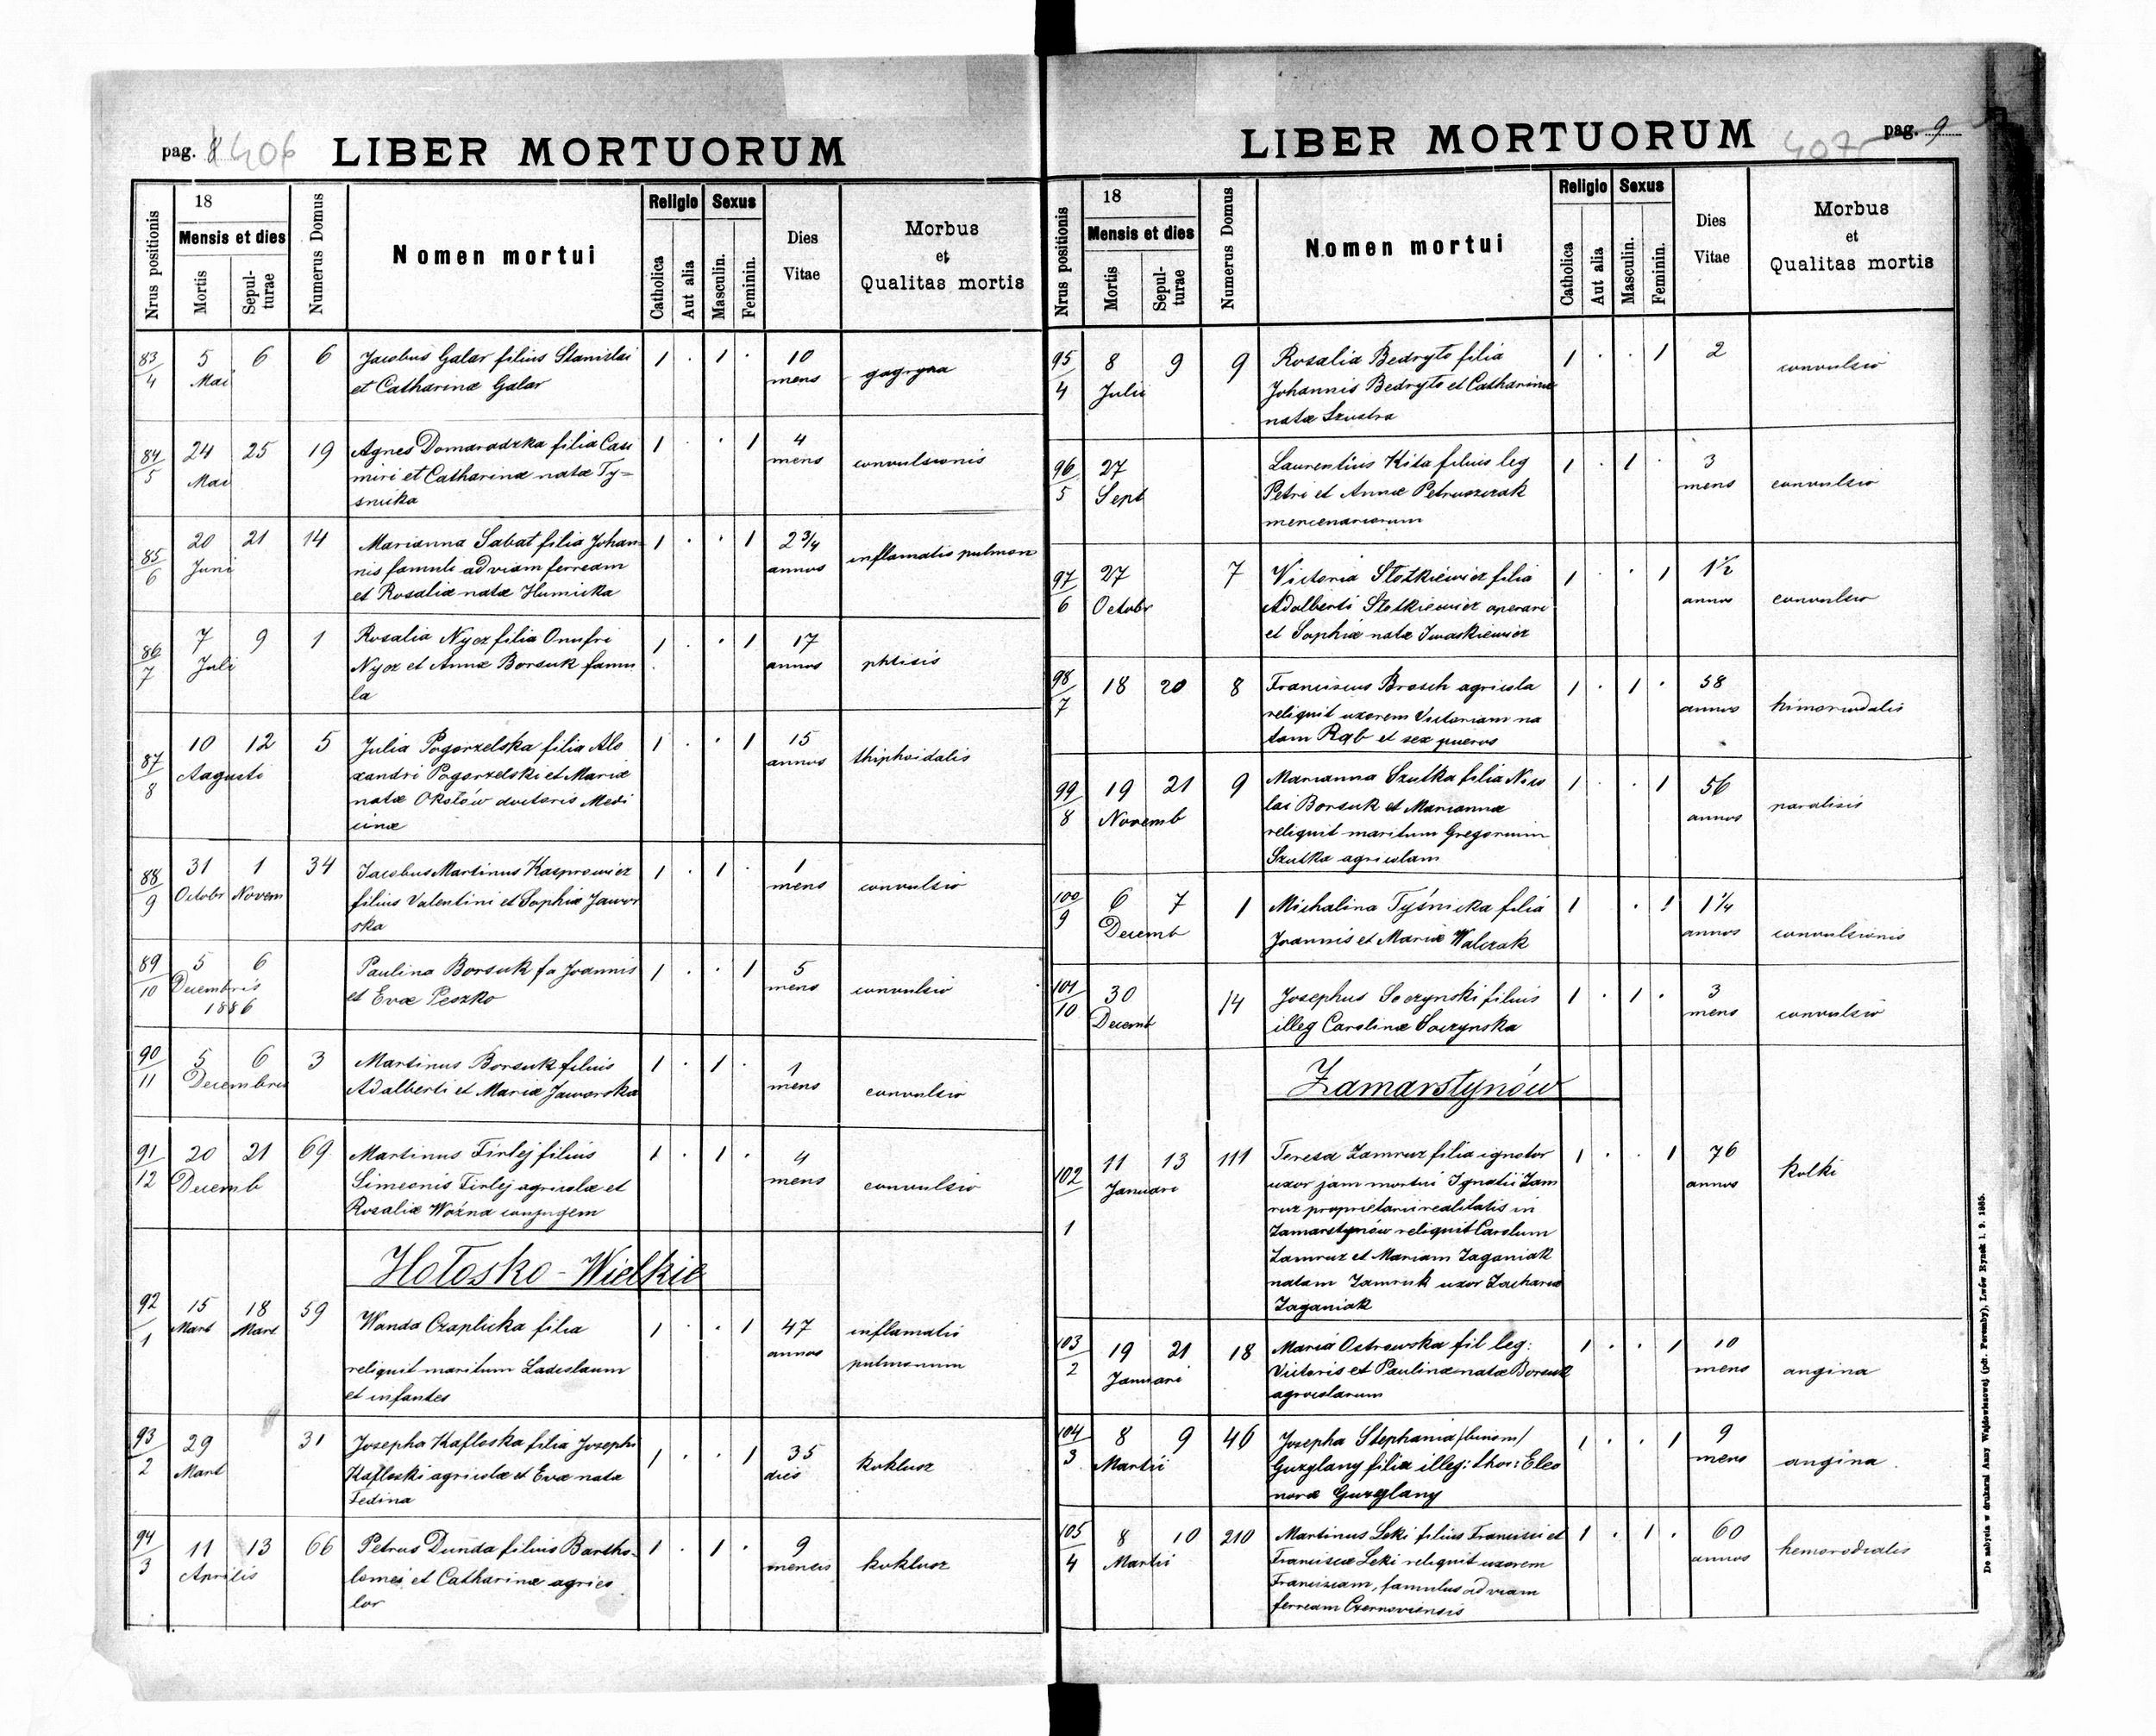 pag. 8 406 LIBER MORTUORUM
Nrus positionis
18
Mensis et dies
Mortis
Sepul-
turae
Numerus Domus
Nomen mortui
Religio
Catholica
Aut alia
Sexus
Masculin.
Feminin.
Dies
Vitae
Morbus
et
Qualitas mortis
83 5 6 6 Jacobus Galar filius Stanislai 1 . 1 . 10
4 Mai et Catharinæ Galar mens
84 24 25 19 Agnes Domaradzka filia Casi 1 . . 1 4
5 Mai miri et Catharinæ natæ Ty= mens convulsionis
snicka
85 20 21 14 Marianna Sabat filia Johan= 1 . . 1 2 3/4
6 Juni nis famuli ad viam ferream annos inflamatis pulmon
et Rosaliæ natæ Humicka
86 7 9 1 Rosalia Nycz filia Onufri 1 . . 1 17
7 Juli Nycz et Annæ Borsuk famu annos phtisis
la
87 10 12 5 Julia Pogorzelska filia Ale 1 . . 1 15
8 Augusti xandri Pogorzelski et Mariæ annos thiphoidalis
natæ Okołów doctoris Medi
cinæ
88 31 1 34 Jacobus Martinus Kasprowicz 1 . 1 . 1
9 Octobr Novem filius Valentini et Sophiæ Jawor mens convulsio
ska
89 5 6 Paulina Borsuk fa Joannis 1 . . 1 5
10 Decembris et Evæ Peszko mens convulsio
1886
90 5 6 3 Martinus Borsuk filius 1 . 1 . 1
11 Decembris Adalberti et Mariæ Jaworska mens convulsio
91 20 21 69 Martinus Firlej filius 1 . 1 . 4
12 Decemb Simeonis Firlej agricolæ et mens convulsio
Rosaliæ Woźna conjugem
Hołosko-Wielkie
92 15 18 59 Wanda Czaplicka filia 1 . . 1 47 inflamatis
1 Mart Mart reliquit maritum Ladislaum annos pulmonum
et infantes
93 29 31 Josepha Kafloska filia Josephi 1 . . 1 35
2 Mart Kafloski agricolæ et Evæ nata dies koklusz
Fedina
94 11 13 66 Petrus Dunda filius Bartho- 1 . 1 . 9
3 Aprilis lomei et Catharinæ agrico mensis koklusz
lor
LIBER MORTUORUM 407 pag. 9
Nrus positionis
18
Mensis et dies
Mortis
Sepul-
turae
Numerus Domus
Nomen mortui
Religio
Catholica
Aut alia
Sexus
Masculin.
Feminin.
Dies
Vitae
Morbus
et
Qualitas mortis
95 8 9 9 Rosalia Bedryto filia 1 . . 1 2 convulsio
4 Julii Johannis Bedryto et Catharinæ
natæ Szustra
96 27 Laurentius Kita filius leg 1 . 1 . 3
5 Sept Petri et Annæ Petruszczak mens convulsio
mercenariorum
97 27 7 Victoria Słotkiewicz filia 1 . . 1 1 1/2
6 Octobr Adalberti Słotkiewicz operari annos convulsio
et Sophiæ natæ Iwaskiewicz
98 18 20 8 Franciscus Brosch agricola 1 . 1 . 58
7 reliquit uxorem Victoriam na annos himoroidalis
tam Rąb et sex pueros
99 19 21 9 Marianna Szutka filia Nico 1 . . 1 56
8 Novemb lai Borsuk et Mariannæ annos paralisis
reliquit maritum Gregorium
Szutka agricolam
100 6 7 1 Michalina Tyśnicka filia 1 . 1 1 1/4
9 Decemb Joannis et Mariæ Walczak annos convulsionis
101 30 14 Josephus Soczynski filius 1 . 1 . 3
10 Decemb illeg Carolinæ Soczynska mens convulsio
Zamarstynów
102 11 13 111 Teresa Zamruz filia ignotor 1 . . 1 76 kolki
1 Januari uxor jam mortui Ignatii Zam annos
ruz proprietarii realitatis in
Zamarstynów reliquit Carolum
Zamruz et Mariam Zaganiak
natam Zamruk uxor Zachariæ
Zaganiak
103 19 21 18 Maria Ostrowska fil leg: 1 . . 1 10
2 Januari Victoris et Paulinæ natæ Borsuk mens angina
agricolarum
104 8 9 46 Josepha Stephania /binom/ 1 . . 1 9
3 Martii Guzglany filia illeg: thor: Eleo mens angina
noræ Guzglany
105 8 10 210 Martinus Leki filius Francisci et 1 . 1 . 60
4 Martii Franciscæ Leki reliquit uxorem annos hemorodialis
Franciscam, famulus ad viam
ferream Czernoviensis
Do nabycia w drukarni Anny Wajdowiczowej (pch. Poremby), Lwów Rynek l. 9. 1885.